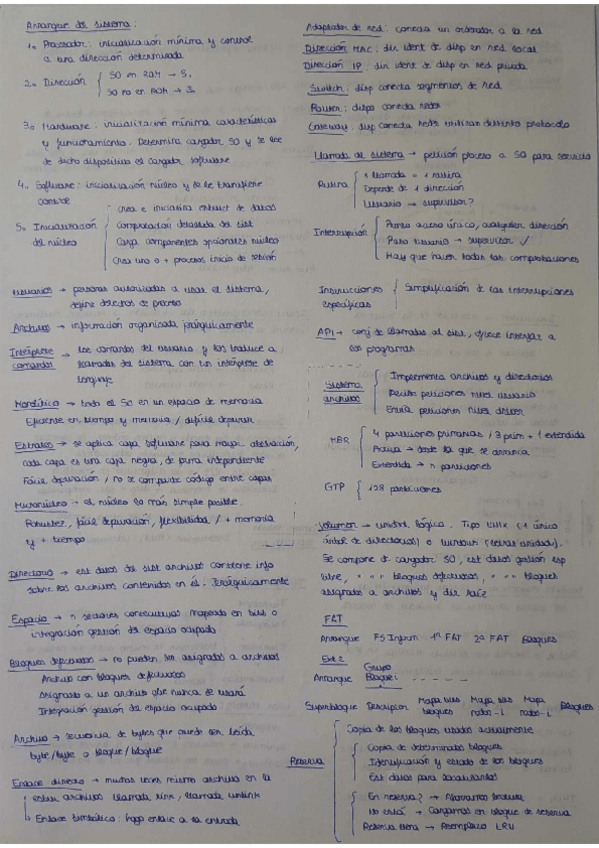 Arranque del sistema:
1.- Procesador: inicialización mínima y control
a una dirección determinada
2.- Dirección { SO en ROM → S.
SO no en ROM → 3.
3.- Hardware: inicialización mínima características
y funcionamiento. Determina cargador SO y se lee
de dicho dispositivo el cargador software
4.- Software: inicialización núcleo y se le transfiere
control
5.- Inicialización del núcleo { crea e inicializa estruct de datos
Comprobación detallada del sist
Carga componentes opcionales núcleo
Crea uno o + procesos inicio de sesión
Usuarios → personas autorizadas a usar el sistema,
define derechos de proceso
Archivos → información organizada jerárquicamente
Intérprete comandos → lee comandos del usuario y los traduce a
llamadas del sistema con un intérprete de
lenguaje
Monolítico → todo el SO en un espacio de memoria
Eficiente en tiempo y memoria / difícil depurar
Estratos → se aplica capa software para mayor abstracción,
cada capa es una caja negra, de forma independiente
Fácil depuración / no se comparte código entre capas
Micronúcleo → el núcleo lo más simple posible.
Robustez, fácil depuración, flexibilidad / + memoria
y + tiempo
Directorio → est datos del sist archivos contiene info
sobre los archivos contenidos en él. Jerárquicamente
Espacio → n sectores consecutivos mapeado en bits o
integración gestión del espacio ocupado
Bloques defectuosos → no pueden ser asignados a archivos
Archivo con bloques defectuosos
Asignarlo a un archivo que nunca se usará
Integración gestión del espacio ocupado
Archivo → secuencia de bytes que puede ser leída
byte/byte o bloque/bloque
Enlace directo → muchas veces mismo archivo en la
estru archivos llamada link, llamada unlink
Enlace simbólico: hago enlace a la entrada
Adaptador de red: conecta un ordenador a la red
Dirección MAC: dir ident de disp en red local
Dirección IP: dir ident de disp en red privada
Switch: disp conecta segmentos de red
Router: dispo conecta redes
Gateway: disp conecta redes utilizan distinto protocolo
Llamada al sistema → petición proceso a SO para servicio
Rutina { 1 llamada = 1 rutina
Depende de 1 dirección
Usuario → supervisor?
Interrupción { Punto acceso único, cualquier dirección
Paso usuario → supervisor ✓
Hay que hacer todas las comprobaciones
Instrucciones específicas { Simplificación de las interrupciones
API → conj de llamadas al sist, ofrece interfaz a
los programas
Sistema archivos { Implementa archivos y directorios
Recibe peticiones nivel usuario
Envía peticiones nivel driver
MBR { 4 particiones primarias / 3 prim + 1 extendida
Activa → desde la que se arranca
Extendida → n particiones
GTP { 128 particiones
Volumen → unidad lógica. Tipo UNIX (1 único
árbol de directorios) o Windows (letras unidad).
Se compone de cargador SO, est datos gestión esp
libre, " " " bloques defectuosos, " " " bloques
asignados a archivos y dir raíz
FAT
Arranque FS Inform 1ª FAT 2ª FAT Bloques
Ext 2
Arranque Grupo Bloque i - - - - -
Superbloque Descripción Mapa bits bloques Mapa bits nodos-i Mapa nodos-i Bloques
Reserva { Copia de los bloques usados actualmente
Copia de determinados bloques
Identificación y estado de los bloques
Est datos para localizarlos
En reserva? → Ahorramos lectura
No está → Cargamos en bloque de reserva
Reserva llena → Reemplazo LRU